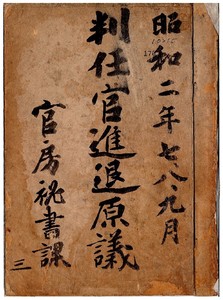 昭和二年七、八、九月
判任官進退原議
官房秘書課
三